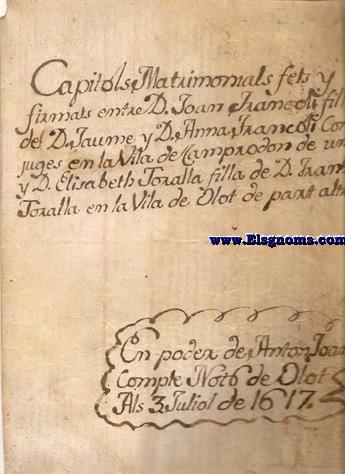 Capitols Matrimonials fets y
firmats entre D. Joan Francolí fill
del D. Jaume y D. Anna Francolí Con
juges en la Vila de Camprodon de un
y D. Elisabeth Toralla filla de D. Fran
Toralla en la Vila de Olot de part alt
www.Elsgnoms.com
En poder de Anton Joan
Compte Not de Olot
Als 3 Juliol de 1617.